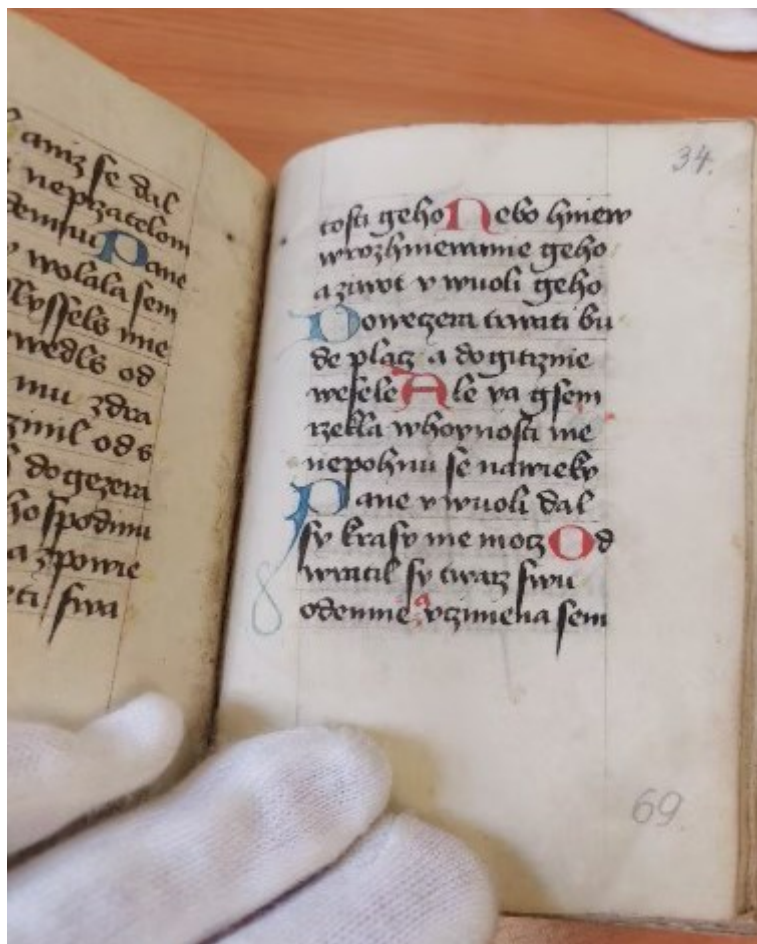 aniz se dal
neprzatelom
demnu Pane
wolala sem
Rysfels mie
wedls od
mu zdra
zinil ods
dogezera
hospodinu
azpowie
eti swa
34.
tosti geho Nebo hniew
wrozhniewanie geho
aziwot v wuoli geho
Doweczera trwati bu
de placz a dogitrznie
wesele Ale ya gsem
rzekla whoynosti me
nepohnu se nawieky
Pane v wuoli dal
sy krasy me mocz Od
wratil sy twarz swu
odemne a vcziniena sem
69